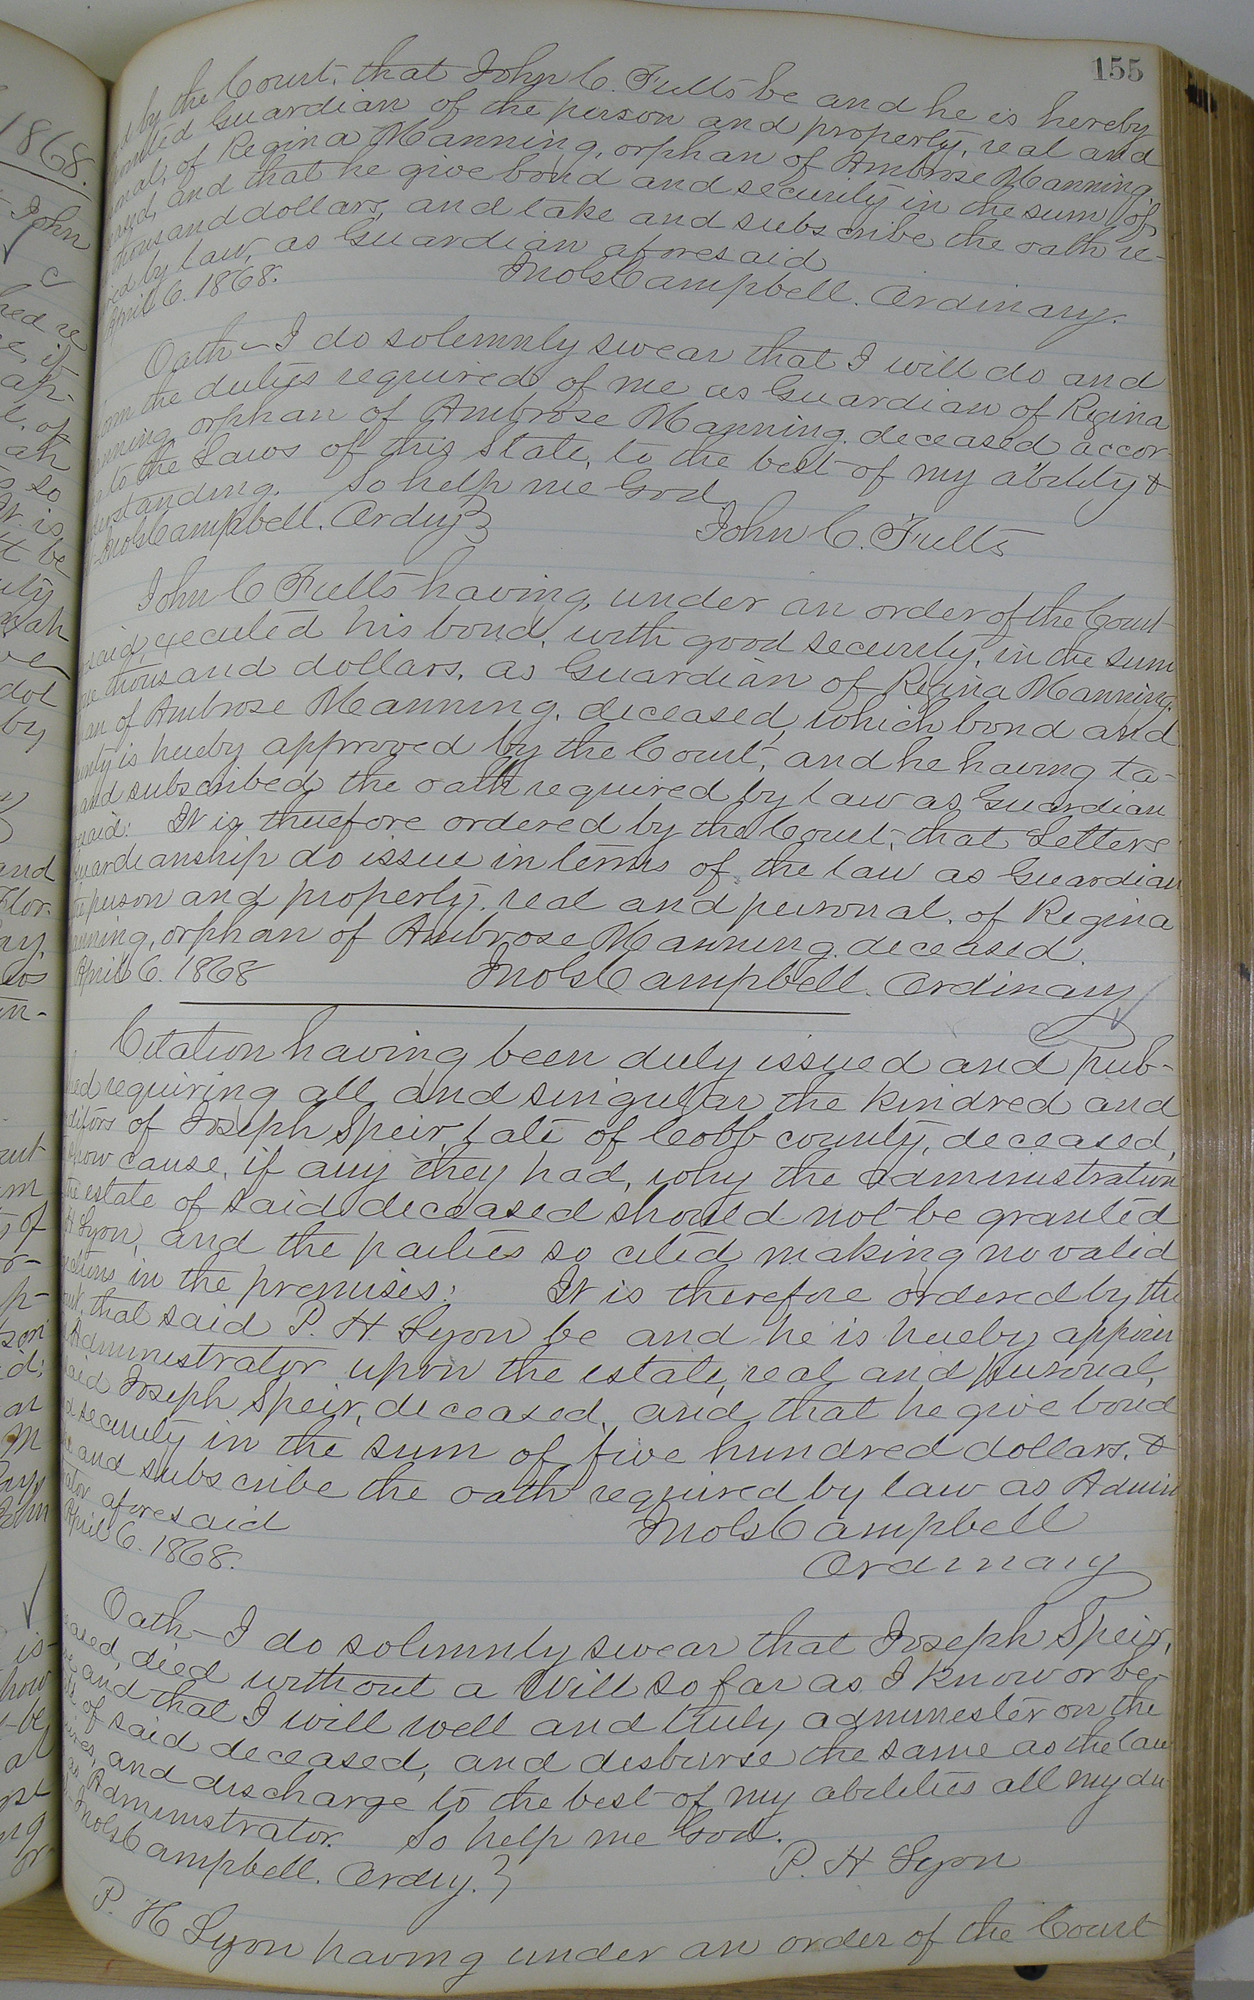 155
by the Court, that John C. Fults be and he is hereby
Guardian of the person and property, real and
of Regina Manning, orphan of Ambrose Manning,
and that he give bond and security in the sum of
thousand dollars, and take and subscribe the oath re-
by law, as Guardian aforesaid
April 6. 1868. Campbell. Ordinary.
Oath - I do solemnly swear that I will do and
the duties required of me as Guardian of Regina
orphan of Ambrose Manning. deceased accor-
to the Laws of this State, to the best of my ability &
So help me God
Campbell. Ordy } John C. Fults
John C Fults having, under an order of the Court
executed his bond, with good security, in the sum
thousand dollars, as Guardian of Regina Manning,
of Ambrose Manning. deceased, which bond and
is hereby approved by the Court, and he having ta-
and subscribed the oath required by law as Guardian
said: It is therefore ordered by the Court, that Letters
do issue in terms of the law as Guardian
person and property. real and personal. of Regina
orphan of Ambrose Manning. deceased.
April 6. 1868 Campbell. Ordinary
Citation having been duly issued and pub-
requiring all and singular the kindred and
of Joseph Speir, late of Cobb county, deceased,
cause, if any they had, why the administration
estate of said deceased should not be granted
H Lyon, and the parties so cited making no valid
in the premises: It is therefore ordered by the
that said P. H. Lyon be and he is hereby appoin
Administrator upon the estate, real and personal,
Joseph Speir, deceased, and that he give bond
security in the sum of five hundred dollars. &
and subscribe the oath required by law as Admin
aforesaid Campbell
April 6. 1868. Ordinary
Oath - I do solemnly swear that Joseph Speir,
died without a Will so far as I know or be-
and that I will well and truly administer on the
of said deceased, and disburse the same as the law
and discharge to the best of my abilities all my du
Administrator. So help me God.
Campbell. Ordy. } P. H Lyon
P. H Lyon having under an order of the Court